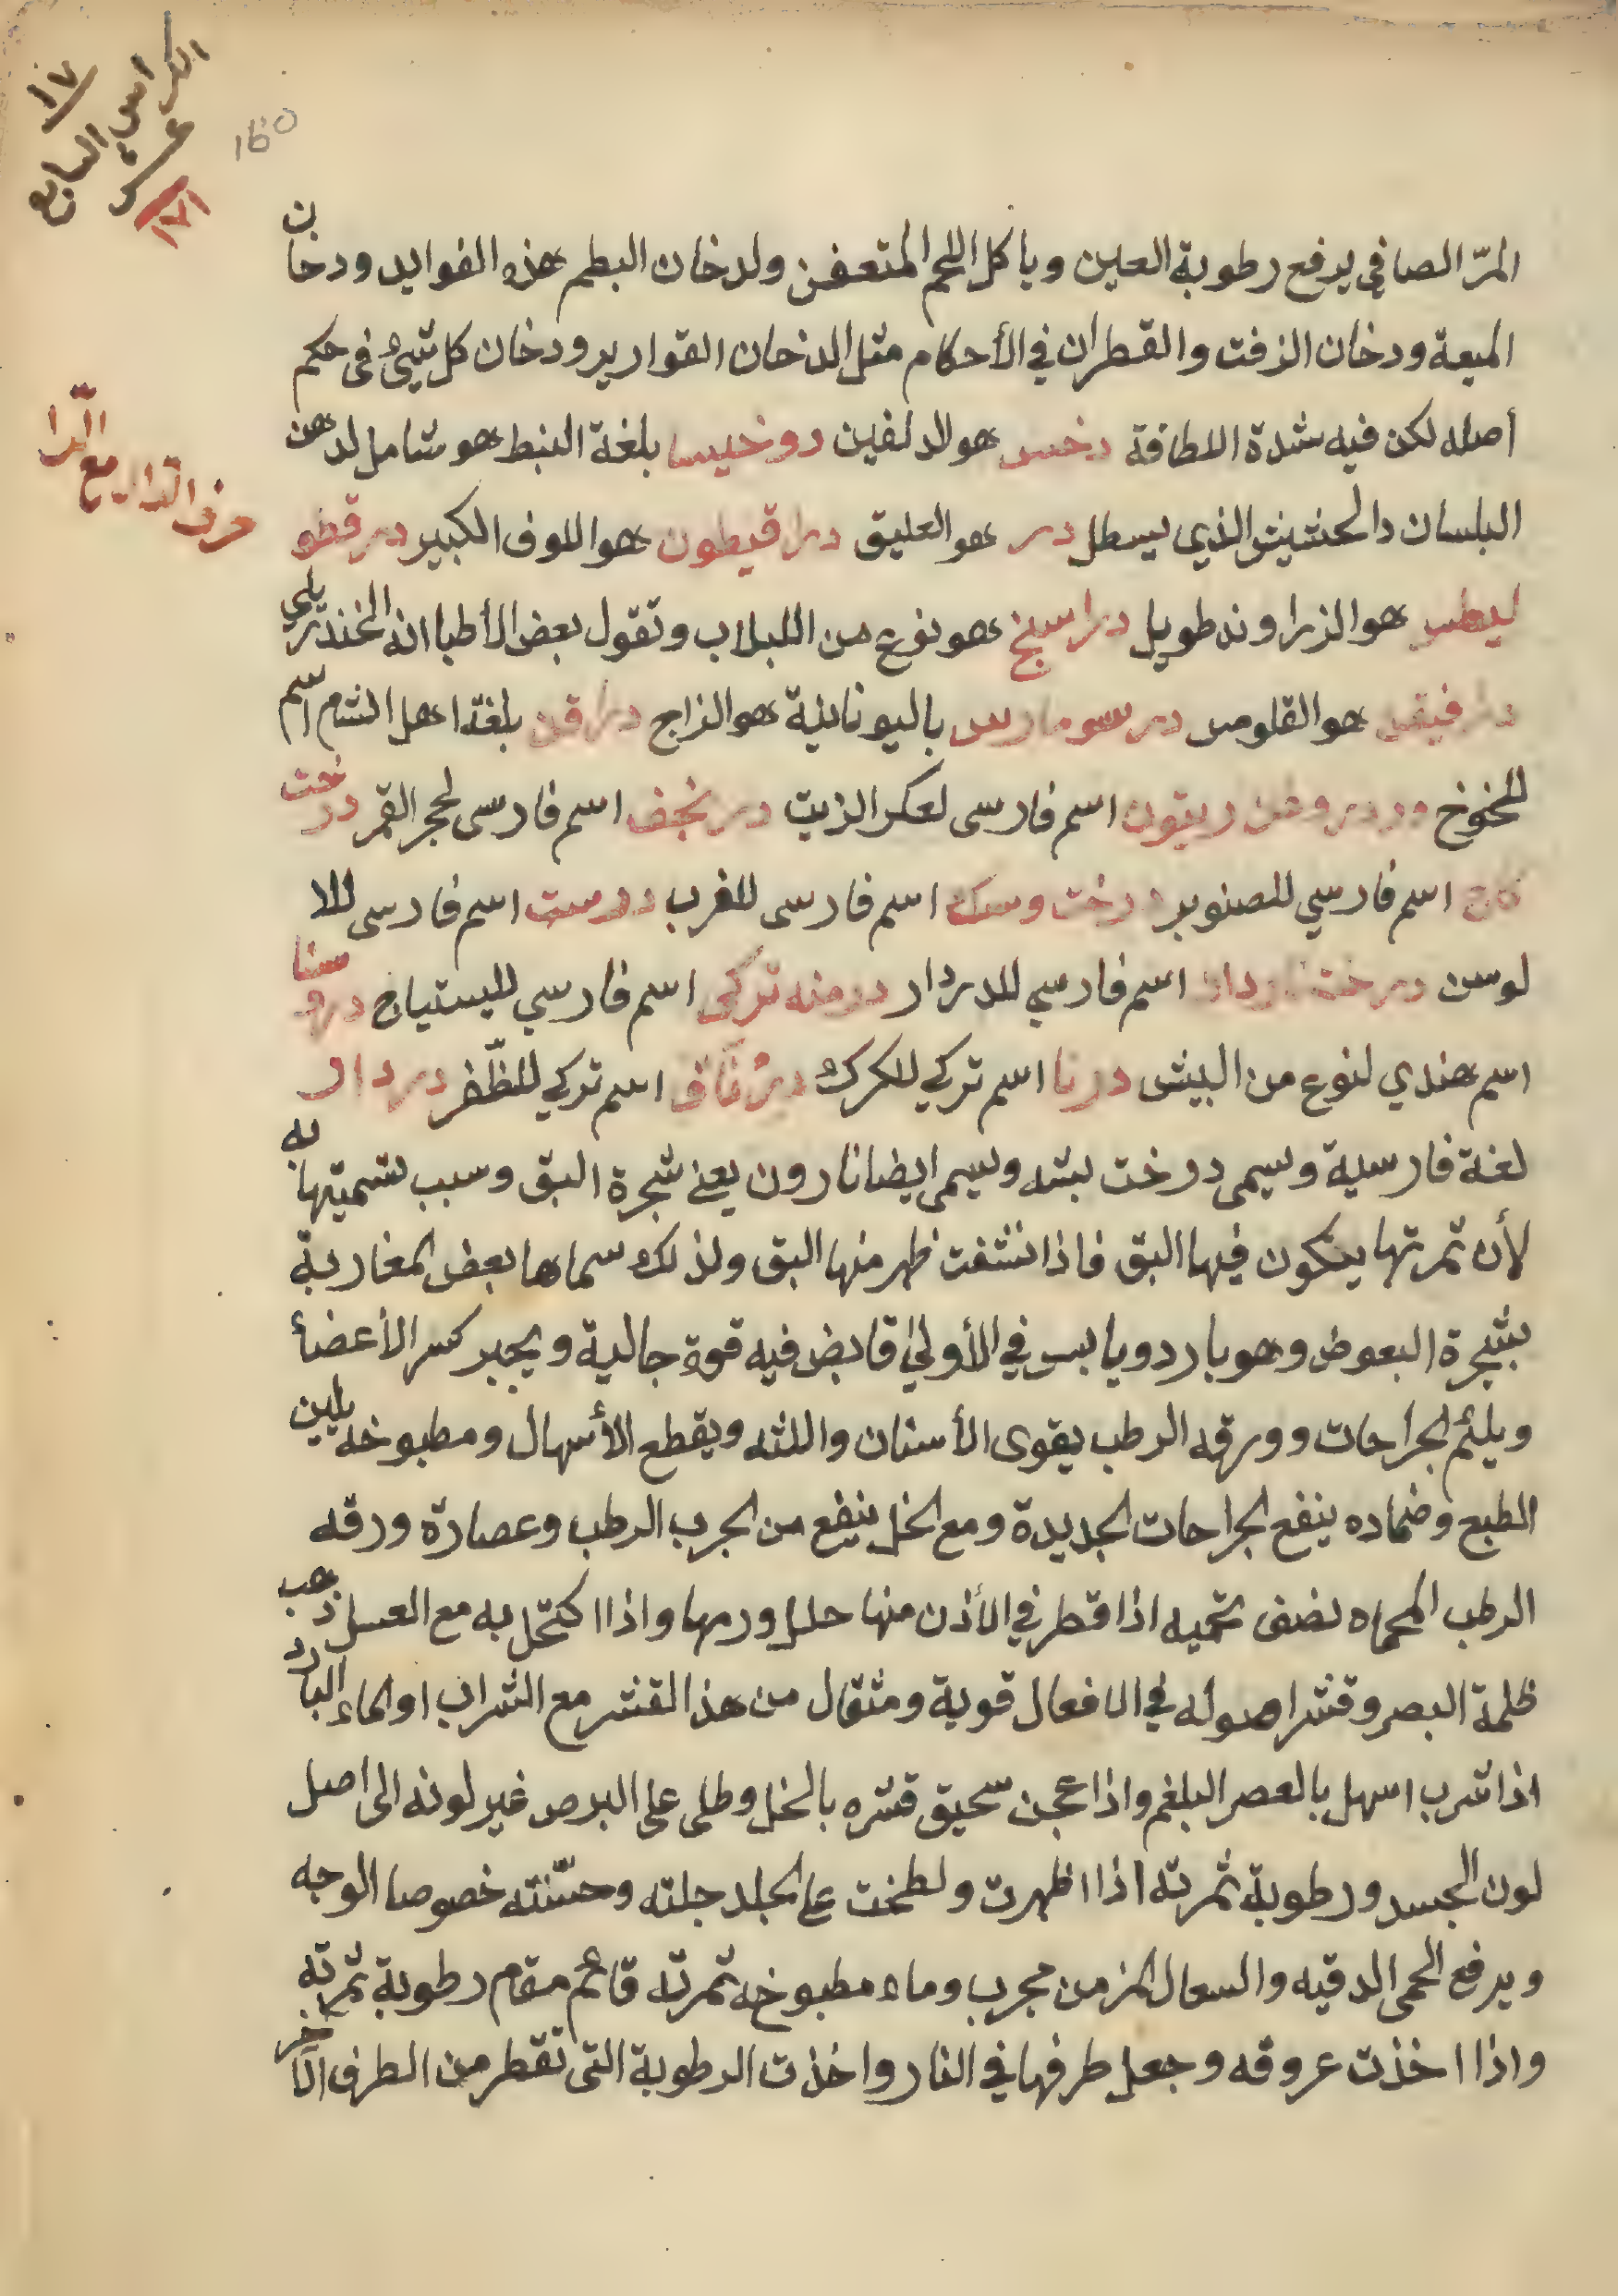 الكراس السابع
عشر
١٧
١٧١
160
المرّ الصافي يدفع رطوبة العين وياكل اللحم المتعفن ولدخان البطم هذه الفوايد ودخان
الميعة ودخان الزفت والقطران في الأحكام مثل الدخان القوارير ودخان كل شيئ فى حكم
أصله لكن فيه شدة اللطافة دخس هو الدلفين دوخيسا بلغة النبط هو شامل لدهن
حرف الدال مع الرا
البلسان دالحشيش الذي يسطل در هو العليق دراقيطون هو اللوف الكبير درقطو
ليطس هو الزراوند طويل دراسبخ هو نوع من اللبلاب وتقول بعض الأطبا انه الخندريلي
درافيقس هو القلومس درسومارس باليونانية هو الزاج دراقن بلغة اهل الشام اسم
للخوخ دردروغن زيتون اسم فارسى لعكر الزيت درنجف اسم فارسى لحجر القمر درخت
كاج اسم فارسي للصنوبر درخت وسك اسم فارسى للغرب دوست اسم فارسى للا
لوسن درخت اسم فارسي للدردار درمنه تركى اسم فارسي لليستياج دروسنا
اسم هندي لنوع من البيش درنا اسم تركي للكرك درناق اسم تركي للظّفر دردار
لغة فارسية ويسمى درخت بشه ويسمى ايضا نارون يعنى شجرة البق وسبب تسميتها به
لأن ثمرتها يتكون فيها البق فاذا نشفت ظهر منها البق ولذلك سماها بعض المغاربة
بشجرة البعوض وهو بارد ويابس في الأولى قابض فيه قوة جالية ويجبر كسر الأعضأ
ويلئم الجراحات وورقه الرطب يقوى الأسنان واللثه ويقطع الأسهال ومطبوخه يلين
الطبع وضماده ينفع الجراحات الجديدة ومع الخل ينفع من الجرب الرطب وعصارة ورقه
الرطب المحماه نصف تحميه اذا قطر في الأذن منها حلل ورمها واذا اكتحل به مع العسل ذهب
ظلمة البصر وقشر اصوله في الافعال قوية ومثقال من هذا القشر مع الشراب او الماء البارد
اذا شرب اسهل بالعصر البلغم واذا عجن سحيق قشره بالخل وطلى على البرص غير لونه الى اصل
لون الجسد ورطوبة ثمرته اذا اظهرت ولطخت على الجلد جلته وحسّنته خصوصا الوجه
ويرفع الحمى الدقيه والسعال المزمن مجرب وماء مطبوخه ثمرته قائم مقام رطوبة ثمرته
واذا اخذت عروقه وجعل طرفها في النار واخذت الرطوبة التى تقطر من الطرف الآخر